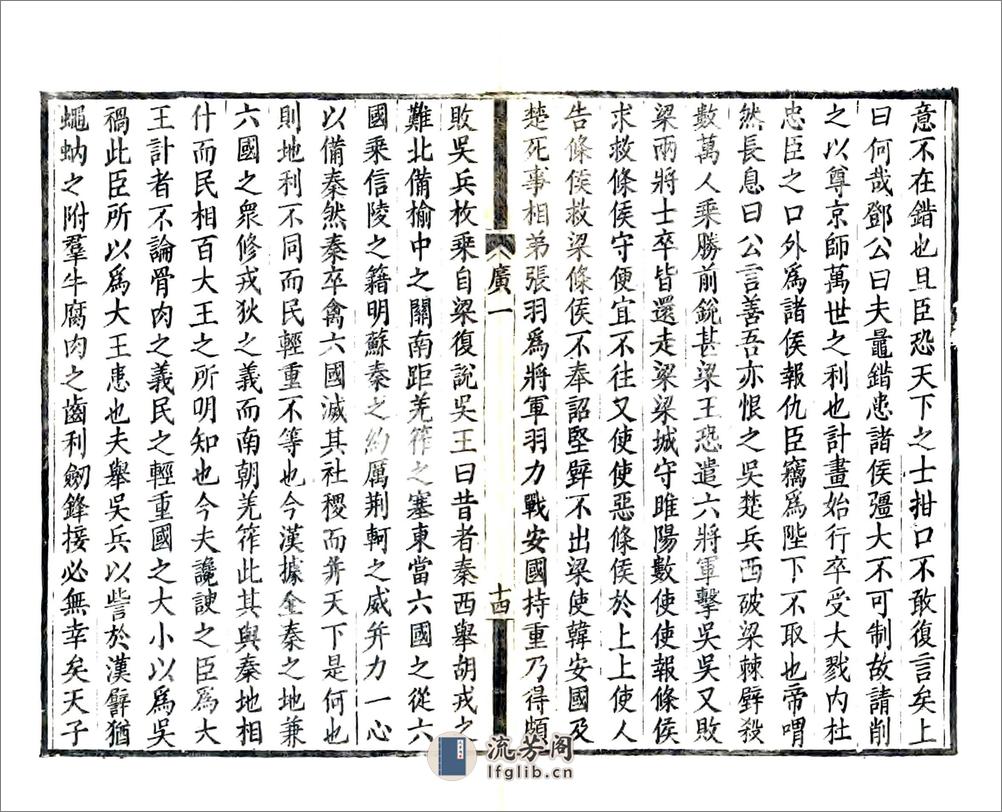 意不在錯也且臣恐天下之士拑口不敢復言矣上
曰何哉鄧公曰夫鼂錯患諸侯彊大不可制故請削
之以尊京師萬世之利也計畫始行卒受大戮內杜
忠臣之口外爲諸侯報仇臣竊爲陛下不取也帝喟
然長息曰公言善吾亦恨之吳楚兵西破梁棘壁殺
數萬人乘勝前銳甚梁王恐遣六將軍擊吳吳又敗
梁兩將士卒皆還走梁梁城守睢陽數使使報條侯
求救條侯守便宜不往又使使惡條侯於上上使人
告條侯救梁條侯不奉詔堅壁不出梁使韓安國及
楚死事相弟張羽爲將軍羽力戰安國持重乃得頗
廣一
十四
敗吳兵枚乘自梁復說吳王曰昔者秦西舉胡戎之
難北備榆中之關南距羌筰之塞東當六國之從六
國乘信陵之籍明蘇秦之約厲荆軻之威并力一心
以備秦然秦卒禽六國滅其社稷而并天下是何也
則地利不同而民輕重不等也今漢據全秦之地兼
六國之衆修戎狄之義而南朝羌筰此其與秦地相
什而民相百大王之所明知也今夫讒諛之臣爲大
王計者不論骨肉之義民之輕重國之大小以爲吳
禍此臣所以爲大王患也夫舉吳兵以訾於漢譬猶
蠅蚋之附羣牛腐肉之齒利劒鋒接必無幸矣天子
流芳阁
lfglib.cn